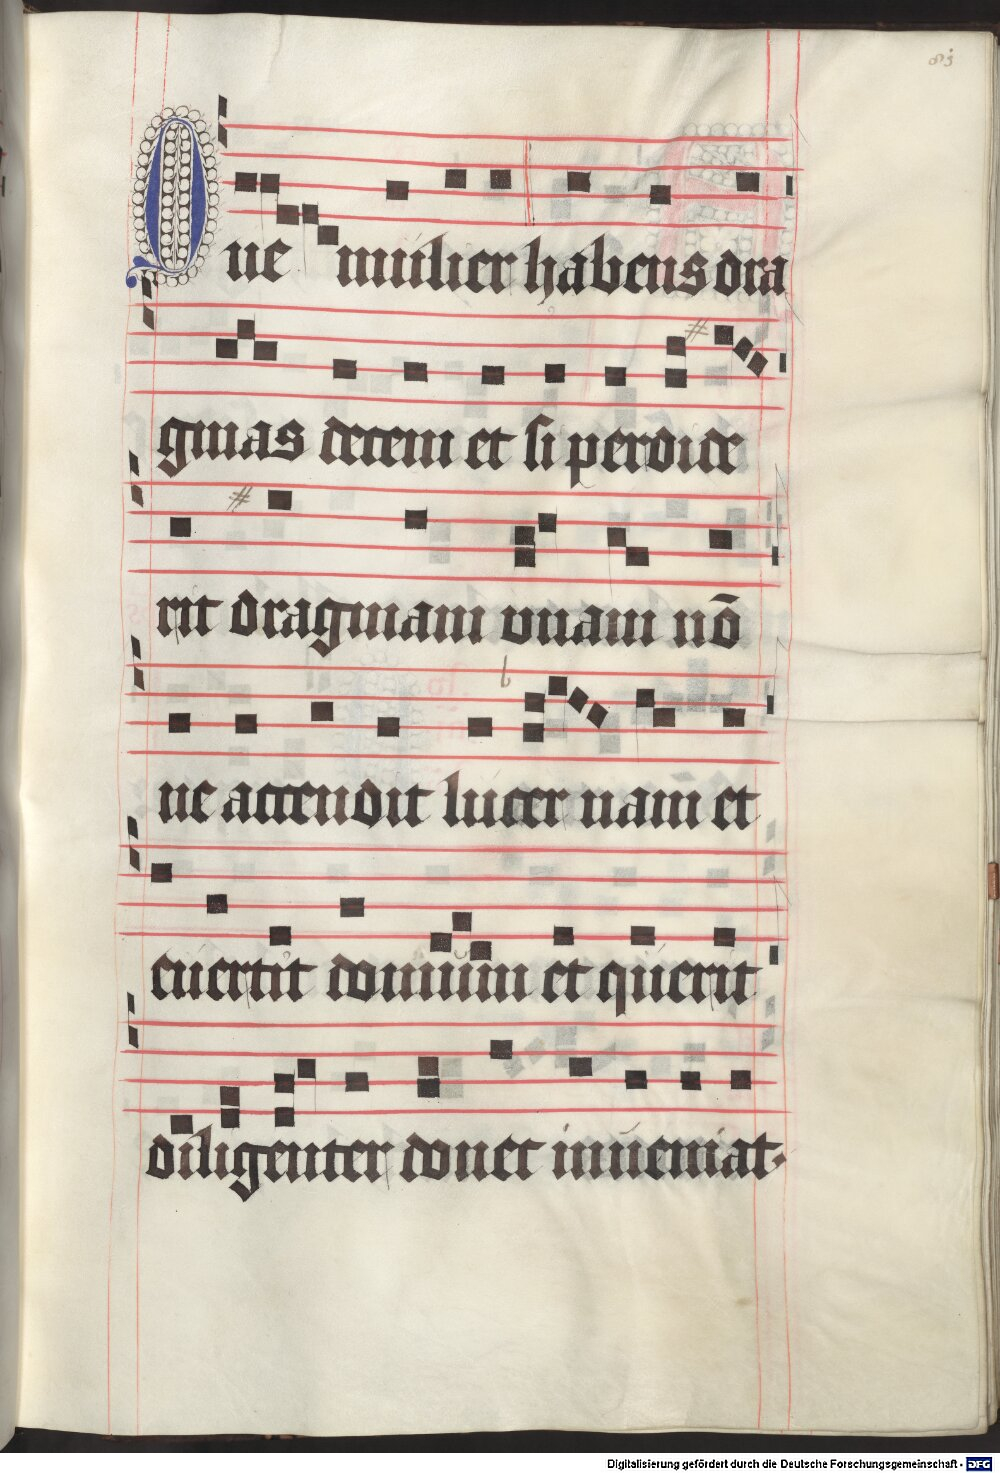 83
Que mulier habens dra
gmas decem et si perdide
rit dragmam vnam nō
ne accendit lucer nam et
euertit domum et querit
diligenter donec inueniat.
Digitalisierung gefördert durch die Deutsche Forschungsgemeinschaft - DFG